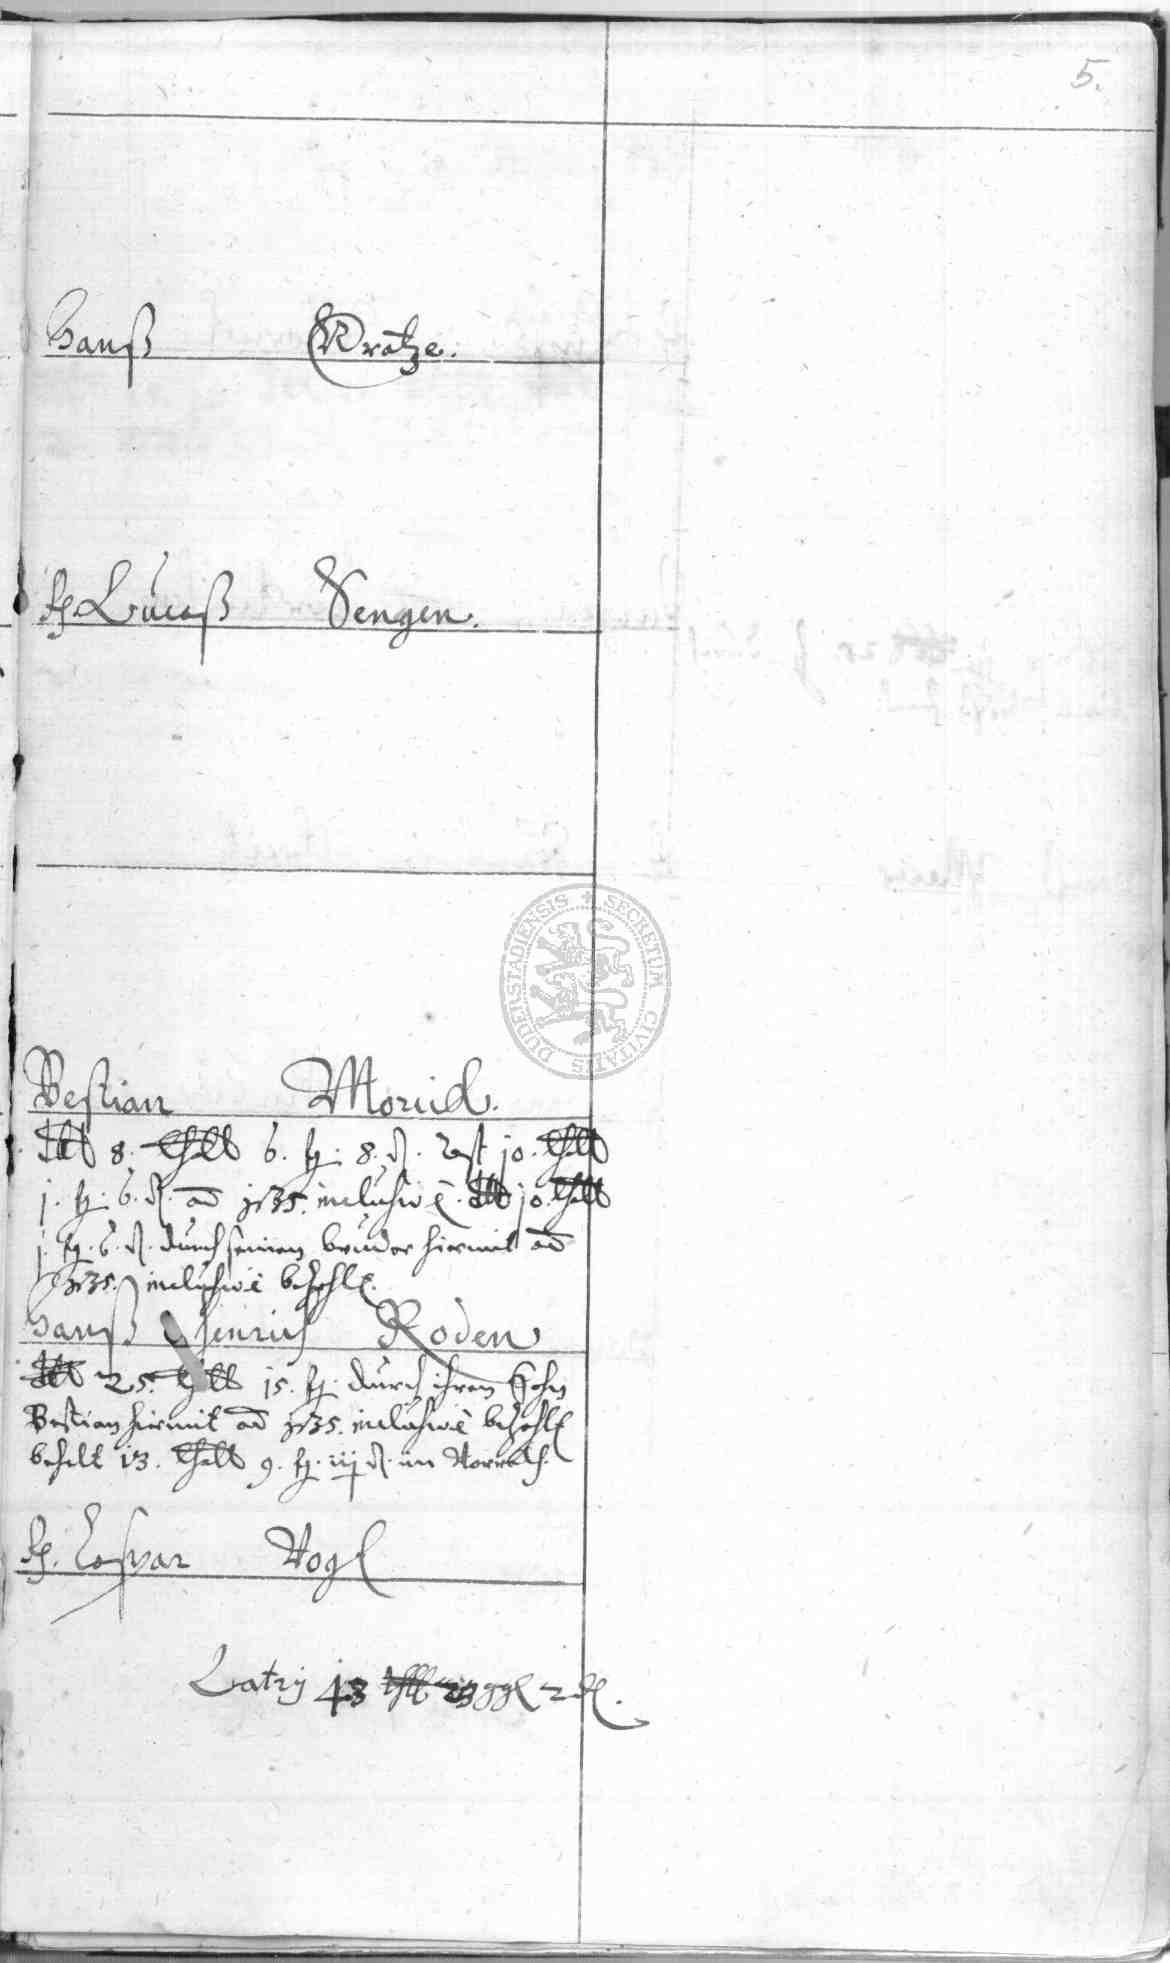 5.
Hanß Kratze.
H. Lucaß Sengen.
DUDERSTADIENSIS SECRETUM CIVITATIS
Bestian Morick.
8. thall 6. gg. 8. d. rest 10. thall
1. gg. 6. d. ad 1635. inclusivè. 10. thall
1. gg. 6. d. durch seinen bruder hiermit ad
1635. inclusivè bezahlt.
Hanß Heinrich Roden
25. thall 15. gg. durch ihren Sohn
Bestian hiermit ad 1635. inclusivè bezahlt
behelt 13. thall 9. gg. iij d. im Vorrath.
H. Caspar Vogt
Latus 43 thll 23 ggl 2 d.